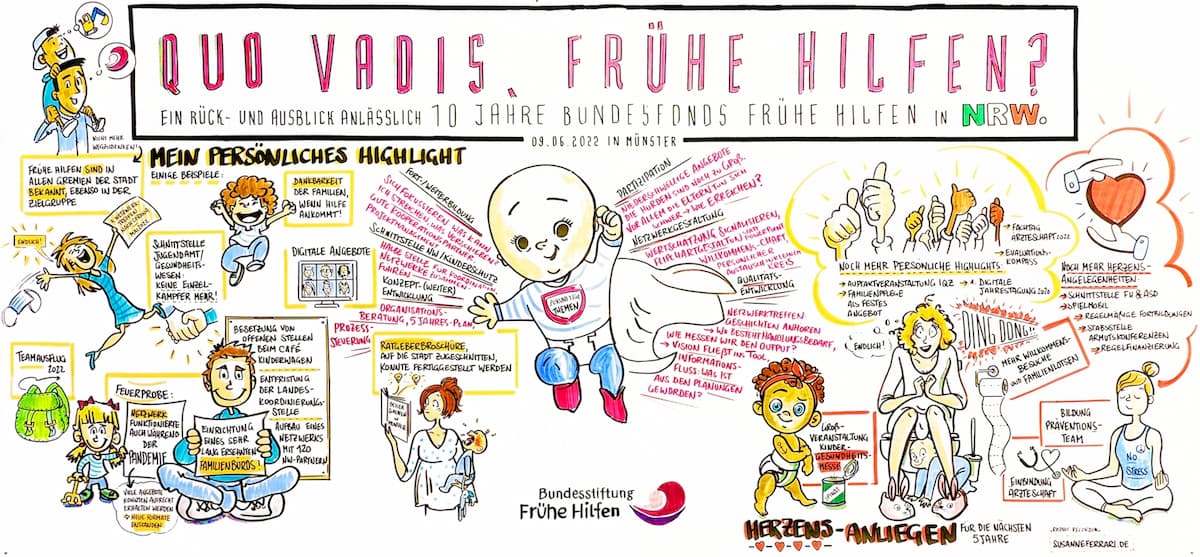 QUO VADIS, FRÜHE HILFEN?
EIN RÜCK- UND AUSBLICK ANLÄSSLICH 10 JAHRE BUNDESFONDS FRÜHE HILFEN IN NRW.
09.06.2022 IN MÜNSTER
NICHT MEHR
WEGZUDENKEN!
FRÜHE HILFEN SIND IN
ALLEN GREMIEN DER STADT
BEKANNT, EBENSO IN DER
ZIELGRUPPE
MEIN PERSÖNLICHES HIGHLIGHT
EINIGE BEISPIELE:
DANKBARKEIT
DER FAMILIEN,
WENN HILFE
ANKOMMT!
ENDLICH!
SCHNITTSTELLE
JUGENDAMT/
GESUNDHEITS-
WESEN:
KEINE EINZEL-
KÄMPFER MEHR!
DIGITALE ANGEBOTE
TEAMAUSFLUG
2022
FEUERPROBE:
NETZWERK
FUNKTIONIERTE
AUCH WÄHREND
DER
PANDEMIE
VIELE ANGEBOTE
KONNTEN AUFRECHT
ERHALTEN WERDEN
+ NEUE FORMATE
ENTSTANDEN
BESETZUNG VON
OFFENEN STELLEN
BEIM CAFÉ
KINDERWAGEN
ENTFRISTUNG
DER LANDES-
KOORDINIERUNGS-
STELLE
AUFBAU EINES
NETZWERKS
MIT 120
NW-PARTNERN
EINRICHTUNG
EINES SEHR
LANG ERSEHNTEN
FAMILIENBÜROS!
FORT-/WEITERBILDUNG
SICH FOKUSSIEREN: WAS KANN
ICH STREICHEN, WAS VERSICHERN?
GUTE KOOPERATIONSPARTNER
SCHNITTSTELLE NW/KINDERSCHUTZ
HALBE STELLE FÜR KOORDINATION
NETZWERKE ZUSAMMEN-
FÜHREN
KONZEPT-(WEITER)
ENTWICKLUNG
ORGANISATIONS-
BERATUNG, 5 JAHRES-PLAN
PROZESS-
STEUERUNG
RATGEBERBROSCHÜRE,
AUF DIE STADT ZUGESCHNITTEN,
KONNTE FERTIGGESTELLT WERDEN
ZUKUNFTS-
THEMEN
PARTIZIPATION
NIEDERSCHWELLIGE ANGEBOTE
DIE HÜRDEN SIND NOCH ZU GROß,
VOR ALLEM DIE ELTERN, DIE SICH
SCHWER → WIE ERREICHEN?
NETZWERKGESTALTUNG
WERTSCHÄTZUNG SIGNALISIEREN,
FLIPCHARTGESTALTUNG
WILLKOMMENS-CHART,
PERSÖNLICHER
QUALITÄTS-
ENTWICKLUNG
NETZWERKTREFFEN
GESCHICHTEN ANHÖREN
→ WO BESTEHT HANDLUNGSBEDARF,
WIE MESSEN WIR DEN OUTPUT?
→ VISION FLIEßT INS TOOL,
INFORMATIONS-
FLUSS: WAS IST
AUS DEN PLANUNGEN
GEWORDEN?
→ FACHTAG
ÄRZTESCHAFT 2022
→ EVALUATIONS-
KOMPASS
NOCH MEHR PERSÖNLICHE HIGHLIGHTS
→ AUFTAKTVERANSTALTUNG IQZ
→ 1. DIGITALE
JAHRESTAGUNG 2020
→ FAMILIENPFLEGE
ALS FESTES
ANGEBOT
NOCH MEHR HERZENS-
ANGELEGENHEITEN:
→ SCHNITTSTELLE FH & ASD
→ SPIELMOBIL
→ REGELMÄßIGE FORTBILDUNGEN
→ STABSSTELLE
ARMUTSKONFERENZEN
→ REGELFINANZIERUNG
ENDLICH!
DING DONG!
MEHR WILLKOMMENS-
BESUCHE
UND FAMILIENLOTSEN
GROß-
VERANSTALTUNG
KINDER-
GESUNDHEITS-
MESSE
SPINAT
BILDUNG
PRÄVENTIONS-
TEAM
EINBINDUNG
ÄRZTESCHAFT
NO
STRESS
Bundesstiftung
Frühe Hilfen
HERZENS-ANLIEGEN FÜR DIE NÄCHSTEN
5 JAHRE
GRAPHIC RECORDING
SUSANNEFERRARI.DE